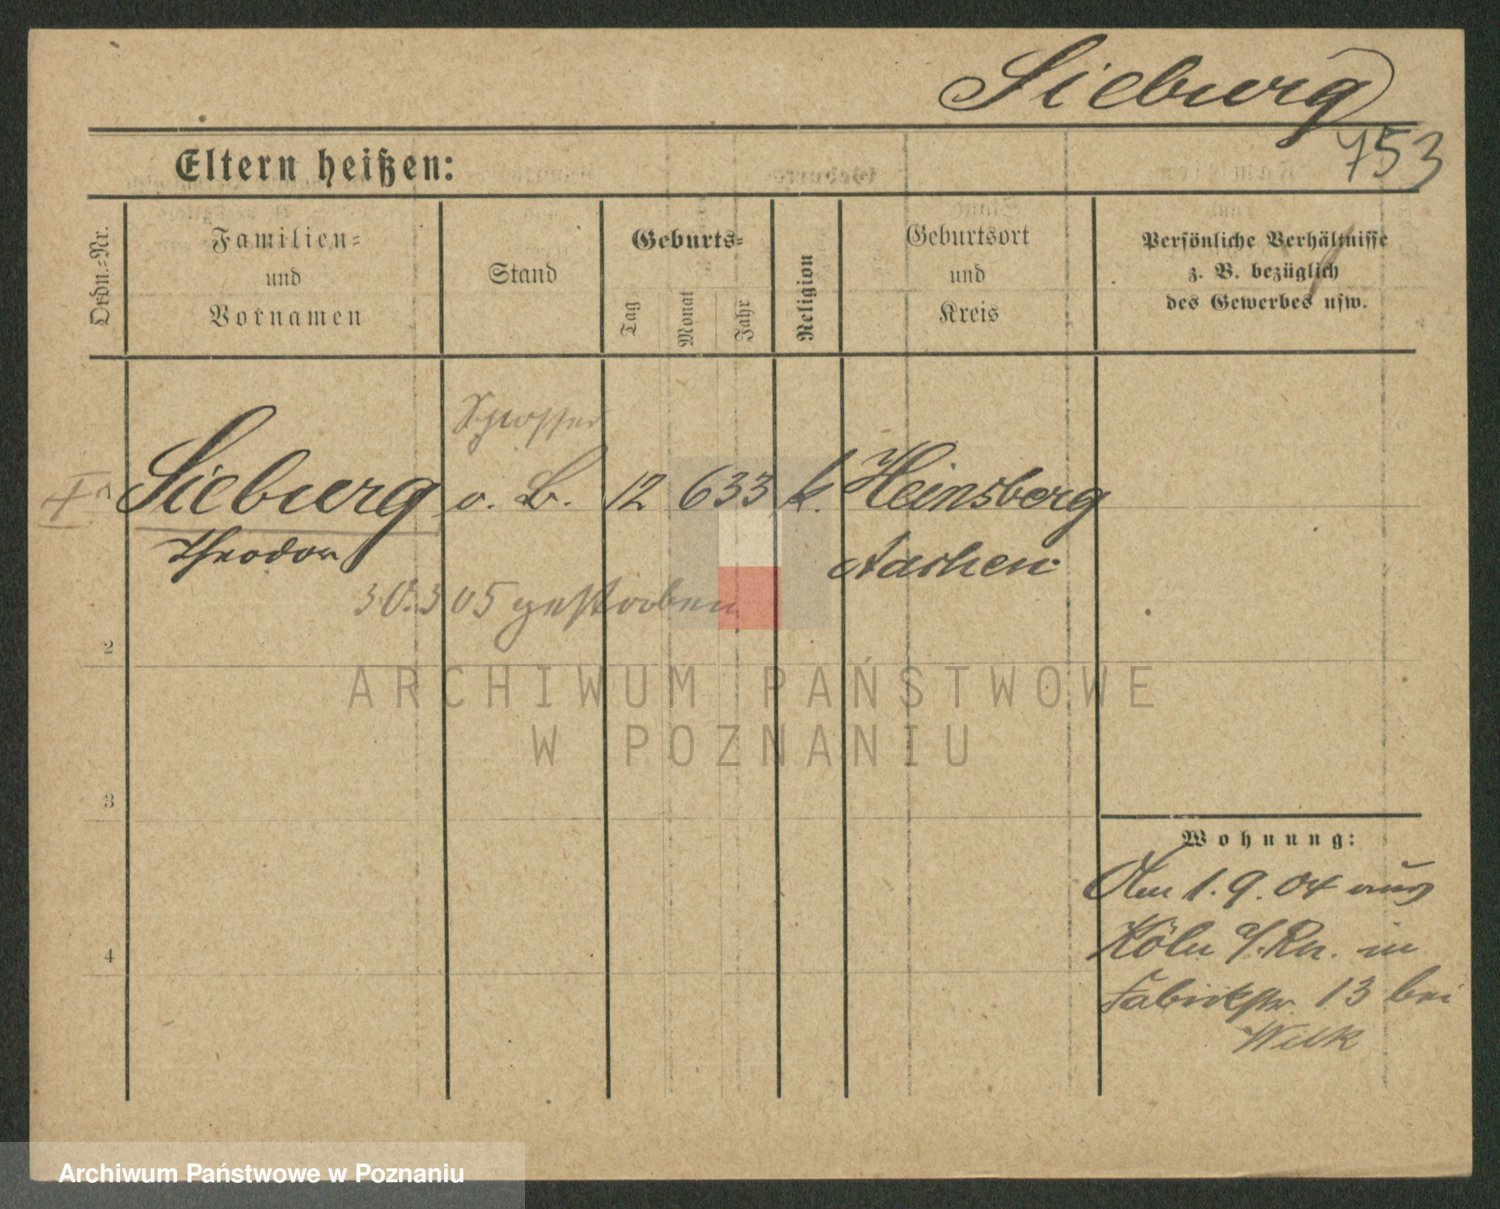 Sieburg
753
Eltern heißen:
Ordn.-Nr.
Familien-
und
Vornamen
Stand
Geburts-
Tag
Monat
Jahr
Religion
Geburtsort
und
Kreis
Persönliche Verhältnisse
z. B. bezüglich
des Gewerbes usw.
Schlosser
Sieburg o. B. 12 6 33 k. Heinsberg
Theodor Aachen
30.3 05 gestorben
2
ARCHIWUM PAŃSTWOWE
W POZNANIU
3
Wohnung:
Am 1. 9. 04 aus
4
Köln a/Rh. in
Fabrikstr. 13 bei
Wilk
Archiwum Państwowe w Poznaniu